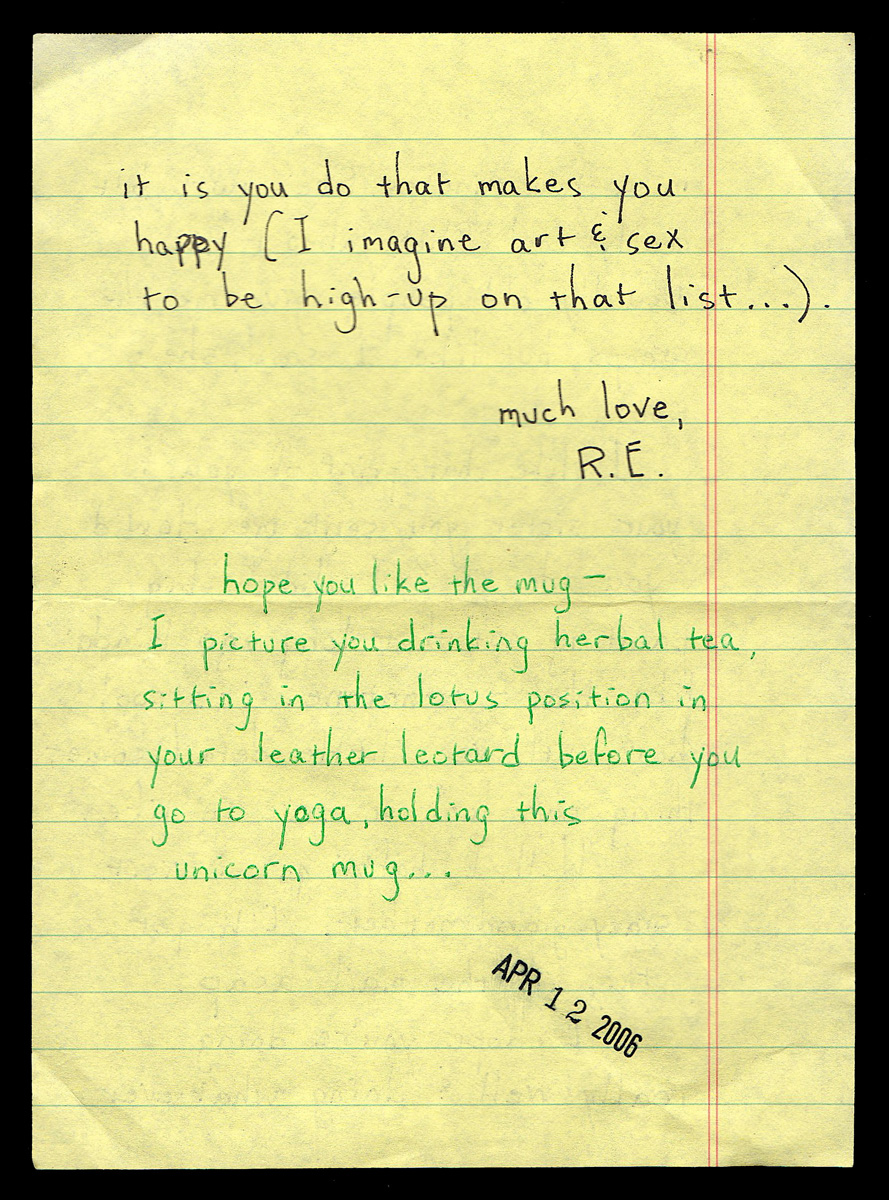 it is you do that makes you
happy (I imagine art & sex
to be high-up on that list...).
much love,
R.E.
hope you like the mug —
I picture you drinking herbal tea,
sitting in the lotus position in
your leather leotard before you
go to yoga, holding this
unicorn mug...
APR 12 2006